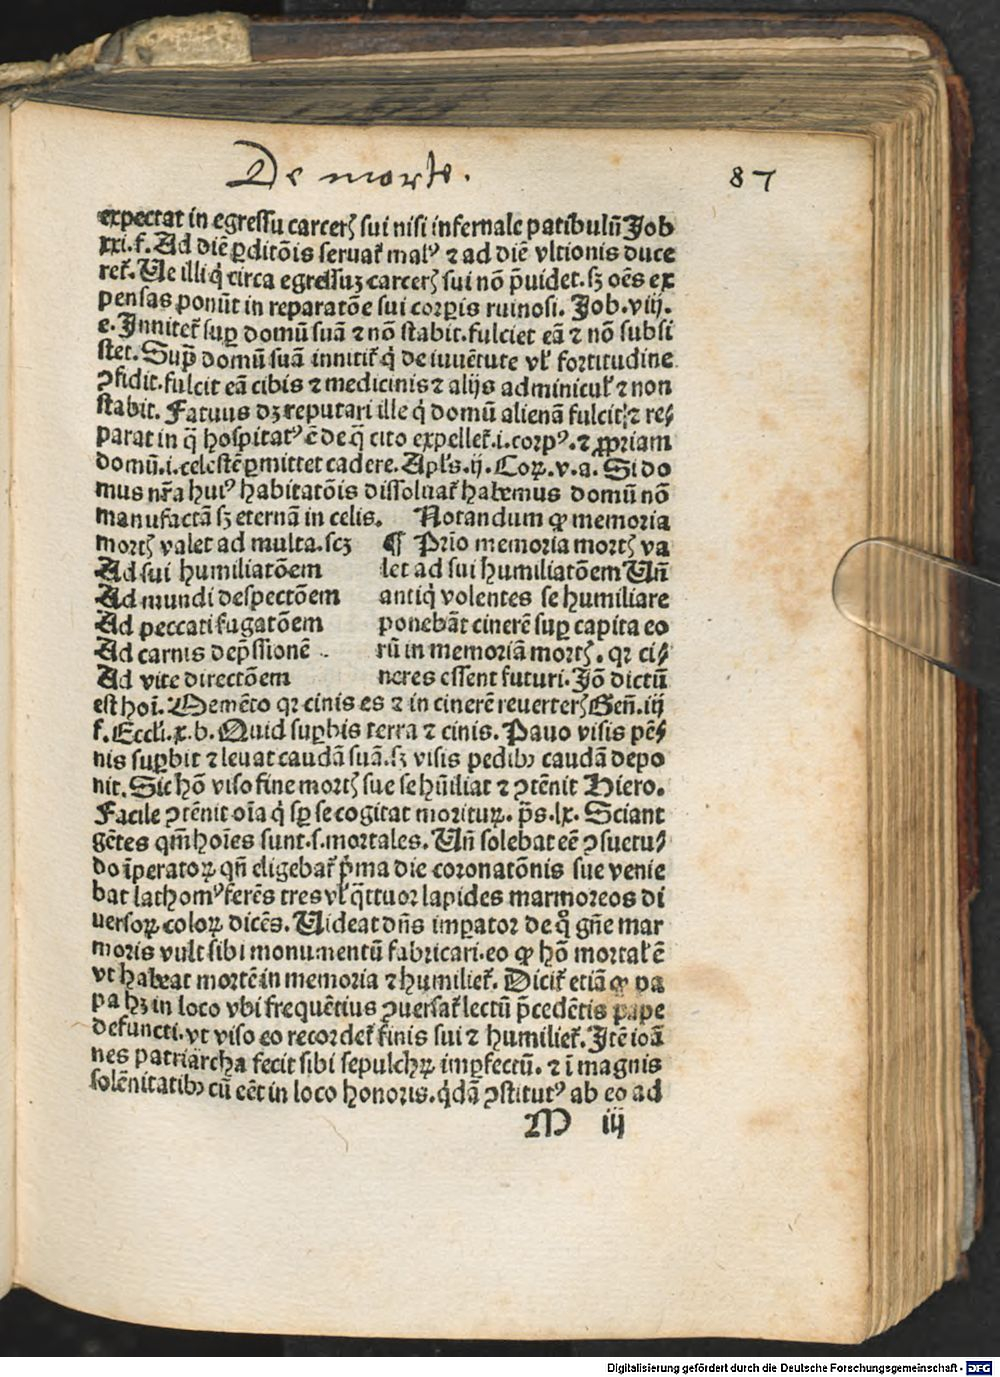 De morte. 87
expectat in egressu carcerꝭ sui nisi infernale patibulū Job
xxi.f. Ad diē ꝑditōis seruat᷑ malꝰ ⁊ ad diē vltionis duce
ret᷑. Ue illi q̇ circa egressuꝫ carcerꝭ sui nō p̄uidet. sꝫ oēs ex
pensas ponūt in reparatōe sui corꝑis ruinosi. Job.viij.
e. Innitet᷑ suꝑ domū suā ⁊ nō stabit. fulciet eā ⁊ nō subsi
stet. Supꝛ̄ domū suā innitit᷑ q̇ de iuuētute vl᷑ fortitudine
ꝯfidit. fulcit eā cibis ⁊ medicinis ⁊ alijs adminicul᷑ ⁊ non
stabit. Fatuus dꝫ reputari ille q̇ domū alienā fulcit ⁊ re⸗
parat in q̄ hospitatꝰ ē de q̄ cito expellet᷑.i.corpꝰ. ⁊ ꝓpriam
domū.i.celestē ꝑmittet cadere. Apl᷑s.ij. Coꝝ.v.a. Si do
mus nr̄a huiꝰ habitatōis dissoluat᷑ habemus domū nō
manufactā sꝫ eternā in celis. Notandum ꝙ memoria
mortꝭ valet ad multa. scꝫ
Ad sui humiliatōem
Ad mundi despectōem
Ad peccati fugatōem
Ad carnis dep̄ssionē
Ad vite directōem
¶ Prīo memoria mortꝭ va
let ad sui humiliatōem Uñ
antiq̇ volentes se humiliare
ponebāt cinerē suꝑ capita eo
rū in memoriā mortꝭ. qꝛ ci⸗
neres essent futuri. Jō dictū
est hoī. Memēto qꝛ cinis es ⁊ in cinerē reuerterꝭ Geñ.iij
f. Eccli.x.b. Quid suꝑbis terra ⁊ cinis. Pauo visis pē⸗
nis suꝑbit ⁊ leuat caudā suā. sꝫ visis pedibꝰ caudā depo
nit. Sic hō viso fine mortꝭ sue se hūiliat ⁊ ꝯtēnit Hiero.
Facile ꝯtēnit oīa q̇ sꝑ se cogitat morituꝝ. p̄s.lx. Sciant
gētes qm̄ hoīes sunt.s.mortales. Uñ solebat eē ꝯsuetu⸗
do īperatoꝝ qñ eligebat᷑ p̄ma die coronatōnis sue venie
bat lathomꝰ ferēs tres vl᷑ q̄ttuor lapides marmoreos di
uersoꝝ coloꝝ dicēs. Uideat dñs imꝑator de qͦ gñe mar
moris vult sibi monumentū fabricari. eo ꝙ hō mortal᷑ ē
vt habeat mortē in memoria ⁊ humiliet᷑. Dicit᷑ etiā ꝙ pa
pa hꝫ in loco vbi frequētius ꝯuersat᷑ lectū p̄cedētis pape
defuncti. vt viso eo recordet᷑ finis sui ⁊ humiliet᷑. Jtē ioā
nes patriarcha fecit sibi sepulchꝝ imꝑfectū. ⁊ ī magnis
solēnitatibꝰ cū eēt in loco honoris. q̇dā ꝯstitutꝰ ab eo ad
M iij
Digitalisierung gefördert durch die Deutsche Forschungsgemeinschaft - DFG